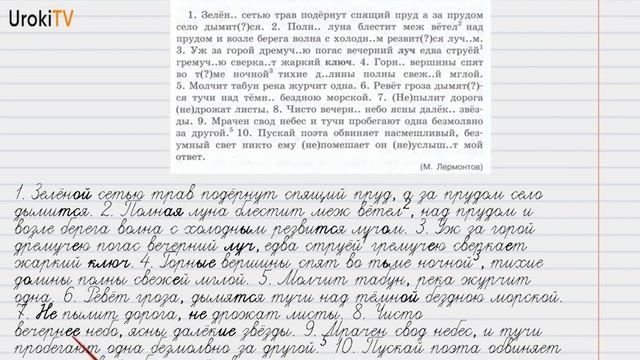 UrokiTV
1. Зелён.. сетью трав подёрнут спящий пруд а за прудом
село дымит(?)ся. 2. Полн.. луна блестит меж вётел² над
прудом и возле берега волна с холодн..м резвит(?)ся луч..м.
3. Уж за горой дремуч..ю погас вечерний луч едва струёй¹
гремуч..ю сверка..т жаркий ключ. 4. Горн.. вершины спят
во т(?)ме ночной³ тихие д..лины полны свеж..й мглой.
5. Молчит табун река журчит одна. 6. Ревёт гроза дымят(?)-
ся тучи над тёмн.. бездною морской. 7. (Не)пылит дорога
(не)дрожат листы. 8. Чисто вечерн.. небо ясны далёк.. звёз-
ды. 9. Мрачен свод небес и тучи пробегают одна безмолвно
за другой.⁵ 10. Пускай поэта обвиняет насмешливый, без-
умный свет никто ему (не)помешает он (не)услыш..т мой
ответ.
(М. Лермонтов)
1. Зелёной сетью трав подёрнут спящий пруд, а за прудом село
дымится. 2. Полная луна блестит меж вётел², над прудом и
возле берега волна с холодным резвится лучом. 3. Уж за горой
дремучею погас вечерний луч, едва струёй¹ гремучею сверкает
жаркий ключ. 4. Горные вершины спят во тьме ночной³, тихие
долины полны свежей мглой. 5. Молчит табун, река журчит
одна. 6. Ревёт гроза, дымятся тучи над тёмной бездною морской.
7. Не пылит дорога, не дрожат листы. 8. Чисто
вечернее небо, ясны далёкие звёзды. 9. Мрачен свод небес, и тучи
пробегают одна безмолвно за другой.⁵ 10. Пускай поэта обвиняет